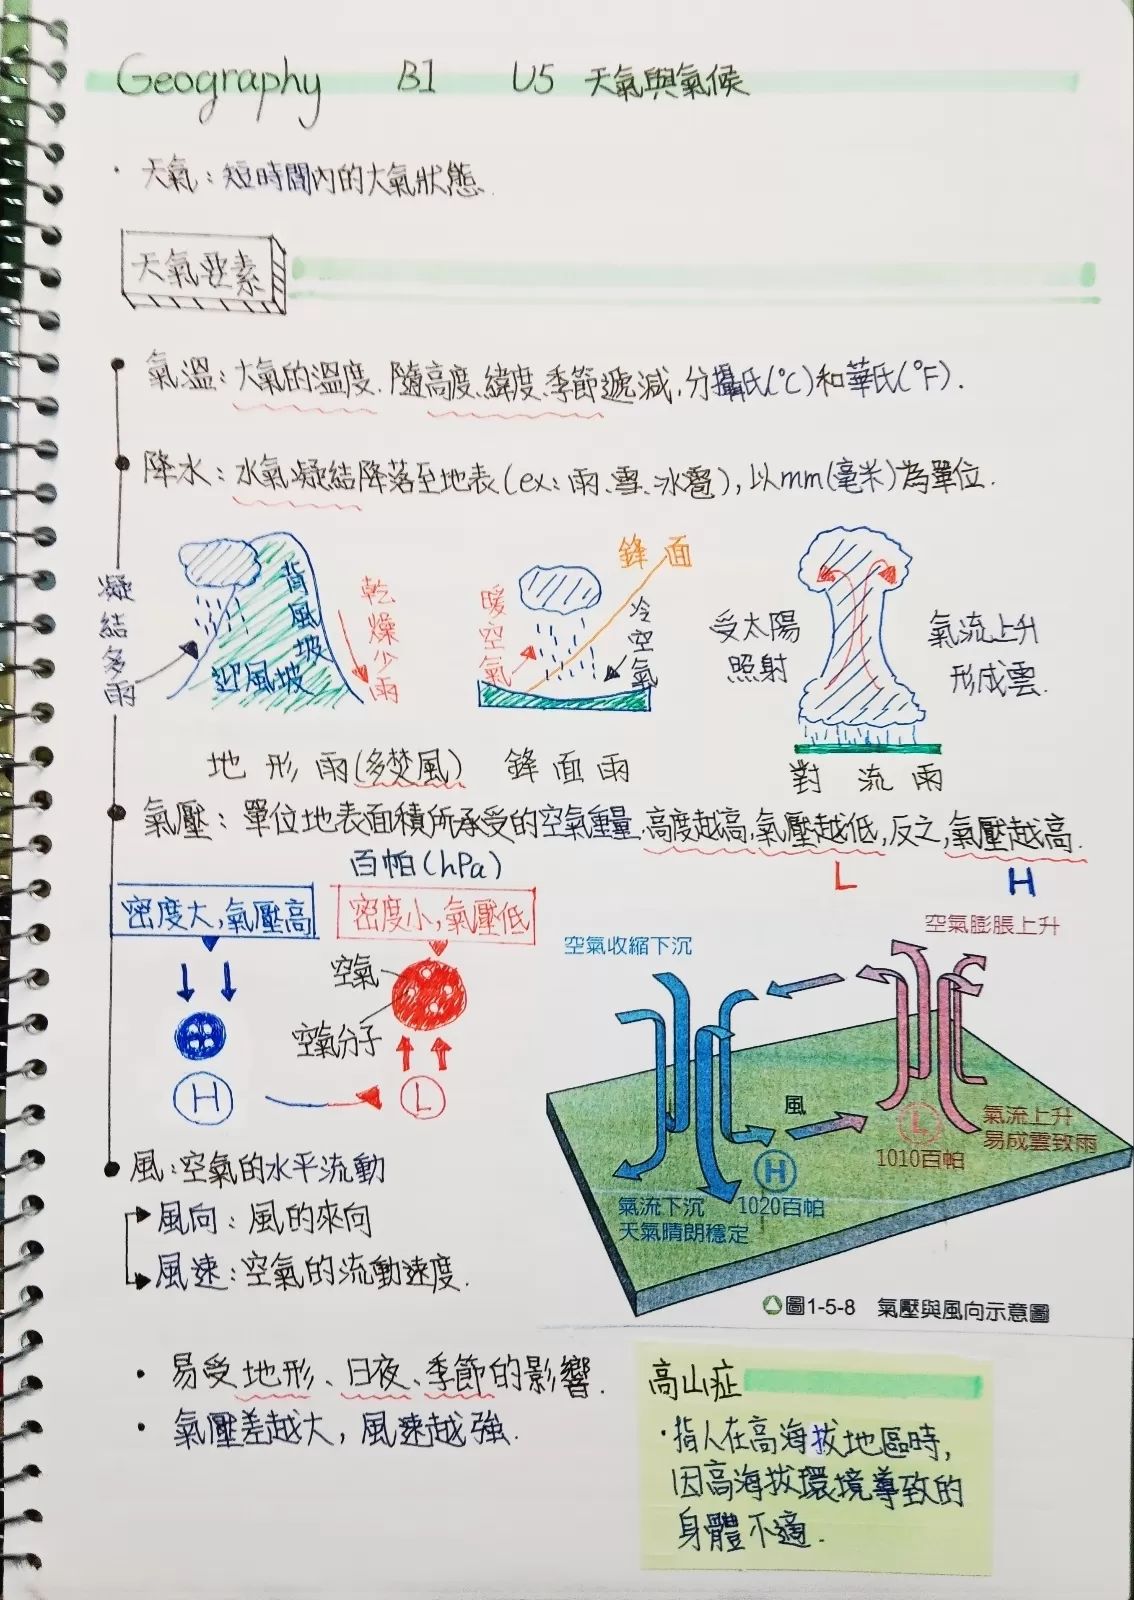 Geography B1 U5 天氣與氣候
·天氣:短時間內的大氣狀態.
天氣要素
氣溫:大氣的溫度.隨高度、緯度、季節遞減,分攝氏(°C)和華氏(°F).
降水:水氣凝結降落至地表(ex:雨、雪、冰雹),以mm(毫米)為單位.
凝結多雨
迎風坡
背風坡
乾燥少雨
地形雨(多焚風)
暖空氣
鋒面
冷空氣
鋒面雨
受太陽
照射
氣流上升
形成雲.
對流雨
氣壓:單位地表面積所承受的空氣重量,高度越高,氣壓越低,反之,氣壓越高.
百帕(hPa)
L
H
密度大,氣壓高
密度小,氣壓低
空氣
空氣分子
H
L
空氣收縮下沉
空氣膨脹上升
風
L
1010百帕
氣流上升
易成雲致雨
H
1020百帕
氣流下沉
天氣晴朗穩定
圖1-5-8 氣壓與風向示意圖
風:空氣的水平流動
風向:風的來向
風速:空氣的流動速度.
·易受地形、日夜、季節的影響.
·氣壓差越大,風速越強.
高山症
·指人在高海拔地區時,
因高海拔環境導致的
身體不適.